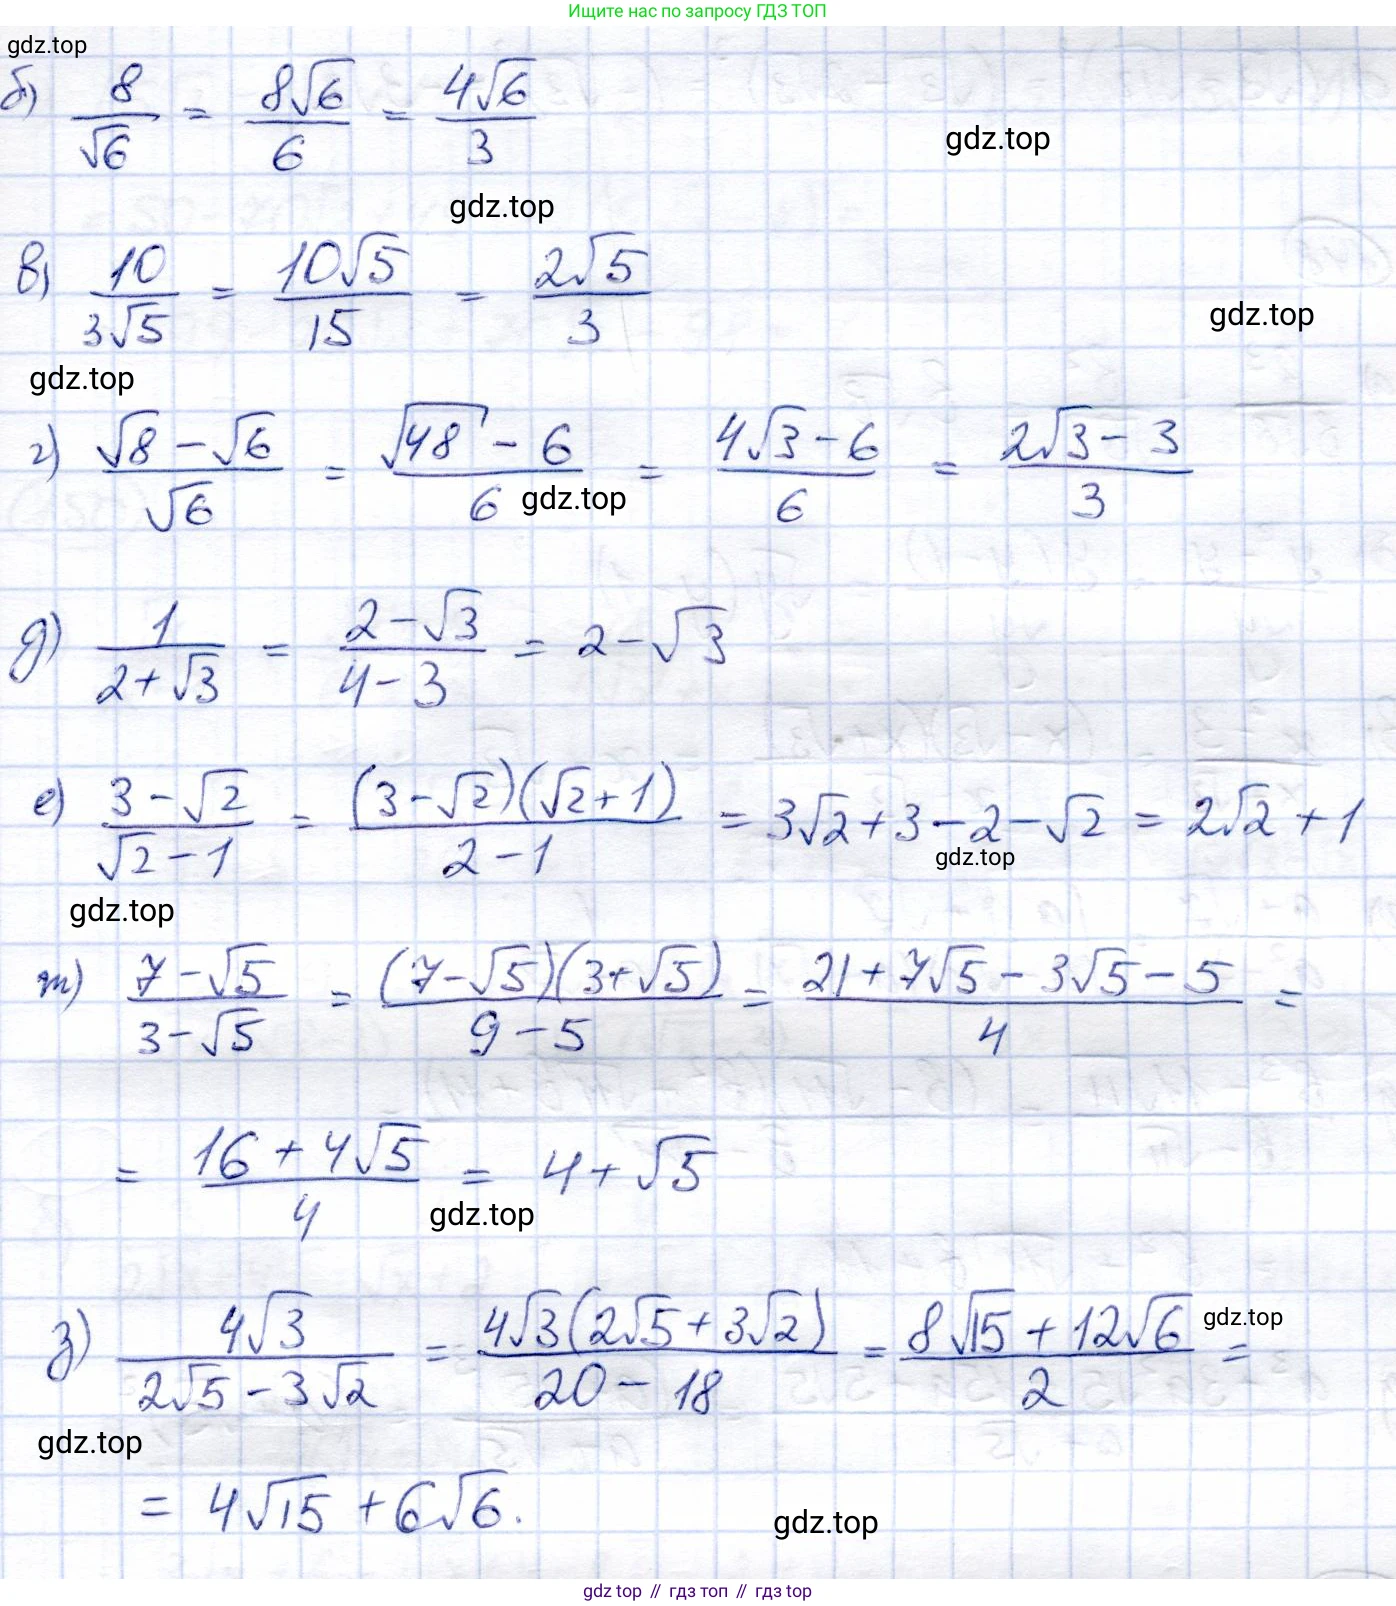 Ищите нас по запросу ГДЗ ТОП
gdz.top
б) 8/√6 = 8√6/6 = 4√6/3
gdz.top
gdz.top
в) 10/(3√5) = 10√5/15 = 2√5/3
gdz.top
gdz.top
г) (√8 - √6)/√6 = (√48 - 6)/6 = (4√3 - 6)/6 = (2√3 - 3)/3
gdz.top
д) 1/(2 + √3) = (2 - √3)/(4 - 3) = 2 - √3
е) (3 - √2)/(√2 - 1) = (3 - √2)(√2 + 1)/(2 - 1) = 3√2 + 3 - 2 - √2 = 2√2 + 1
gdz.top
gdz.top
ж) (7 - √5)/(3 - √5) = (7 - √5)(3 + √5)/(9 - 5) = (21 + 7√5 - 3√5 - 5)/4 =
= (16 + 4√5)/4 = 4 + √5
gdz.top
з) 4√3/(2√5 - 3√2) = 4√3(2√5 + 3√2)/(20 - 18) = (8√15 + 12√6)/2 =
gdz.top
gdz.top
= 4√15 + 6√6.
gdz.top
gdz top // гдз топ // гдз top